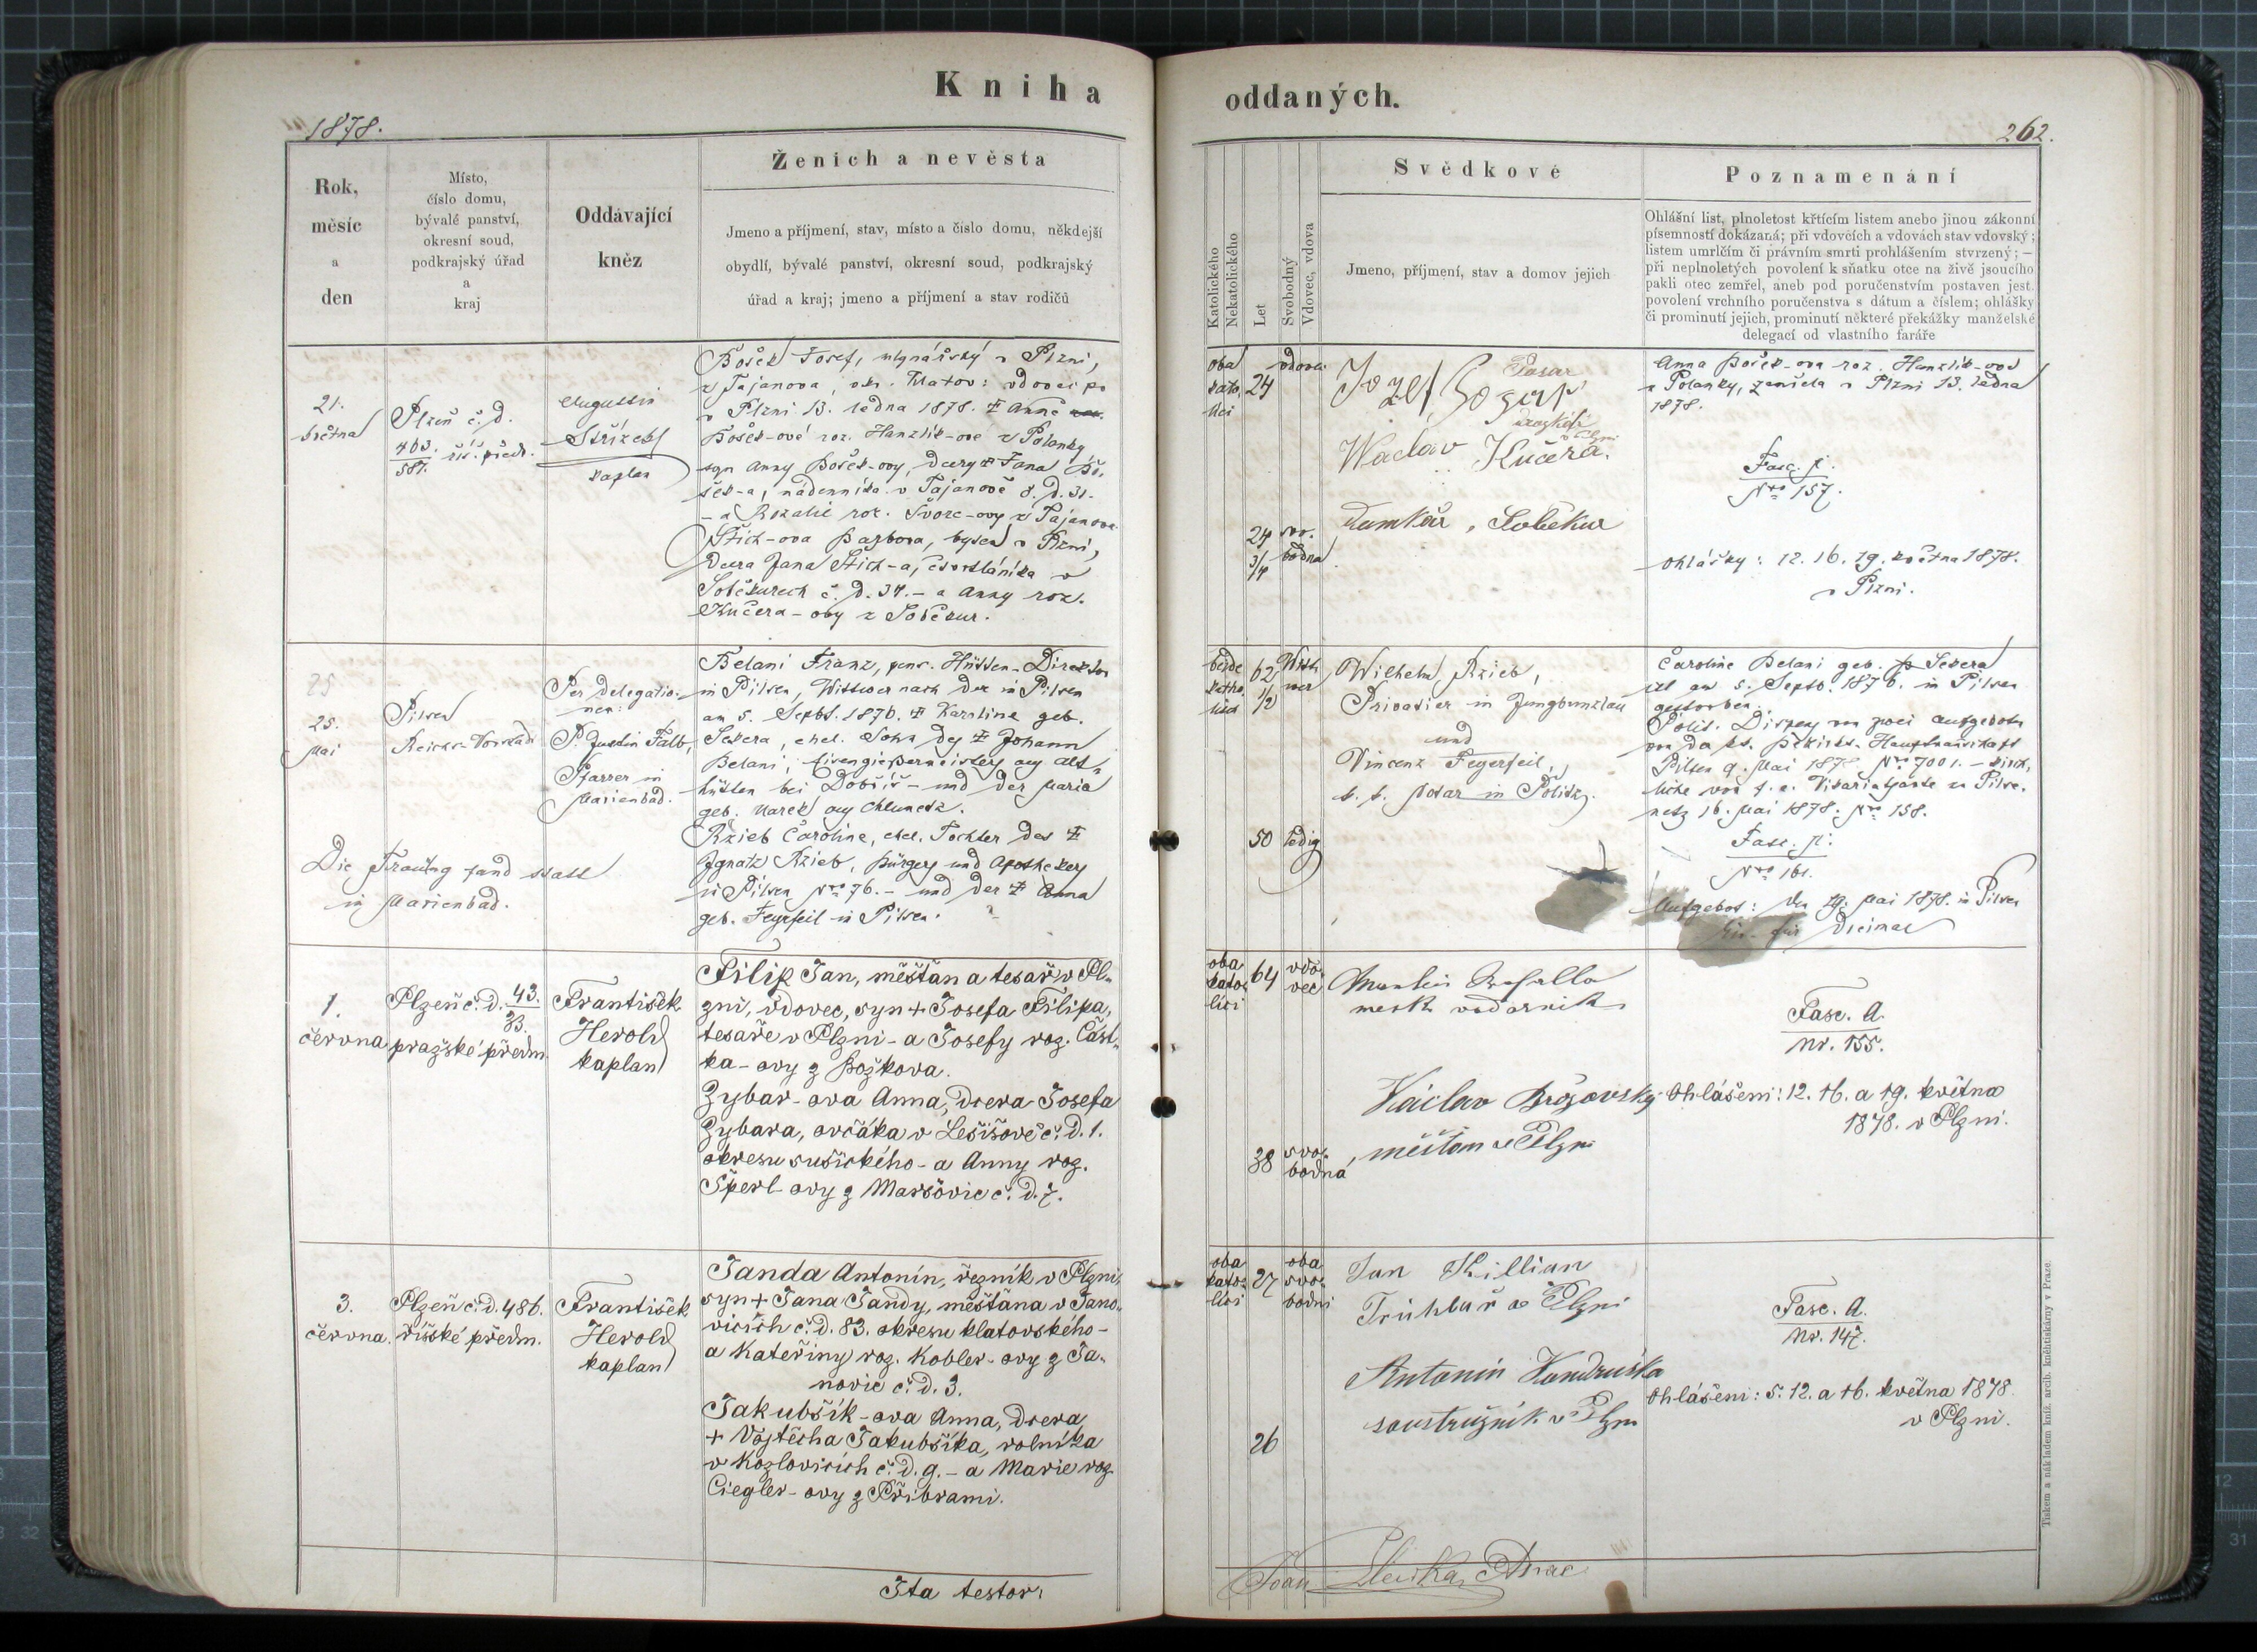 Kniha
oddaných.
1878.
262.
Rok,
měsíc
a
den
Místo,
číslo domu,
bývalé panství,
okresní soud,
podkrajský úřad
a
kraj
Oddávající
kněz
Ženich a nevěsta
Jmeno a příjmení, stav, místo a číslo domu, někdejší
obydlí, bývalé panství, okresní soud, podkrajský
úřad a kraj; jmeno a příjmení a stav rodičů
Katolického
Nekatolického
Let
Svobodný
Vdovec, vdova
Svědkové
Jmeno, příjmení, stav a domov jejich
Poznamenání
Ohlášní list, plnoletost křtícím listem anebo jinou zákonní
písemností dokázaná; při vdovcích a vdovách stav vdovský;
listem umrlčím či právním smrti prohlášením stvrzený; —
při neplnoletých povolení k sňatku otce na živě jsoucího
pakli otec zemřel, aneb pod poručenstvím postaven jest.
povolení vrchního poručenstva s dátum a číslem; ohlášky
či prominutí jejich, prominutí některé překážky manželské
delegací od vlastního faráře
21.
května
Plzeň č. d.
463.
587. říš. předm.
Augustin
Střízek
kaplan
Bošek Josef, mlynářský v Plzni,
z Tajanova, okr. Klatov: vdovec po
v Plzni 13. ledna 1878. † Anně
Bošek-ové roz. Hanzlík-ové z Polanky
syn Anny Bošek-ovy, dcery † Jana Bo-
šek-a, nádenníka v Tajanově č. d. 31.
- a Rozalie roz. Švorc-ovy z Tajanova
Štich-ova Barbora, bytem v Plzni,
dcera Jana Štich-a, čtvrtláníka v
Soběkurech č. d. 37. - a Anny roz.
Kučera-ovy z Soběkur.
oba
kato-
líci
24
vdovec
24
3/4
svo-
bodna
Wáclav Kučera.
Domkář, Soběkur
Anna Bošek-ova roz. Hanzlík-ova
z Polanky, zemřela v Plzni 13. ledna
1878.
Fasc. A.
Nro 157.
Ohlášky: 12. 16. 19. května 1878.
v Plzni.
25.
Mai
Pilsen
Reichs-Vorstadt
Per delegatio-
nem:
P. Justin Falb,
Pfarrer in
Marienbad.
Die Trauung fand statt
in Marienbad.
Belani Franz, pens. Hütten-Direktor
in Pilsen, Wittwer nach der in Pilsen
am 5. Septb. 1876. † Karoline geb.
Sekera, ehel. Sohn des † Johann
Belani, Eisengießermeisters aus Alt-
hütten bei Dobříš - und der Maria
geb. Marek aus Chlumetz.
Rzieb Caroline, ehel. Tochter des †
Ignatz Rzieb, Bürgers und Apothekers
in Pilsen Nro 76. - und der † Anna
geb. Feyrfeil in Pilsen.
beide
katho-
lisch
62
1/2
Witt-
wer
50
ledig
Wilhelm Rzieb,
Privatier in Jungbunzlau
und
Vincenz Feyerfeil,
k. k. Notar in Politz.
Caroline Belani geb. Sekera
ist am 5. Septb. 1876. in Pilsen
gestorben.
Polit. Dispens von zwei Aufgeboten
von der k. k. Bezirks-Hauptmannschaft
Pilsen 9. Mai 1878. Nro 7001. - kirch-
liche von f. e. Vikariatsamte zu Pilse-
netz 16. Mai 1878. Nro 158.
Fasc. A.
Nro 161.
Aufgebot: den 19. Mai 1878. in Pilsen
1.
června
Plzeň č. d. 43.
33.
pražské předm.
František
Herold
kaplan
Filip Jan, měšťan a tesař v Pl-
zni, vdovec, syn + Josefa Filipa,
tesaře v Plzni - a Josefy roz. Část-
ka-ovy z Božkova.
Zybar-ova Anna, dcera Josefa
Zybara, ovčáka v Lešišově č. d. 1.
okresu sušického - a Anny roz.
Šperl-ovy z Maršovic č. d. 7.
oba
kato-
líci
64
vdo-
vec
38
svo-
bodná
mestk vodarnik
Václav Brožovský
měšťan v Plzni
Fasc. A.
Nr. 155.
Ohlášeni: 12. 16. a 19. května
1878. v Plzni.
3.
června.
Plzeň č. d. 486.
říšské předm.
František
Herold
kaplan
Janda Antonín, řezník v Plzni,
syn + Jana Jandy, měšťana v Jano-
vicích č. d. 83. okresu klatovského -
a Kateřiny roz. Kobler-ovy z Ja-
novic č. d. 3.
Jakubšík-ova Anna, dcera
+ Vojtěcha Jakubšíka, rolníka
v Kozlovicích č. d. 9. - a Marie roz.
Ciegler-ovy z Příbrami.
oba
kato-
líci
27
oba
svo-
bodni
26
Jan Killian
Truhlař v Plzni
Antonín Vondruška
soustružník v Plzni
Fasc. A.
Nr. 147.
Ohlášeni: 5. 12. a 16. května 1878.
v Plzni.
Ita testor:
Tiskem a nákladem kníž. arcib. kněhtiskárny v Praze.